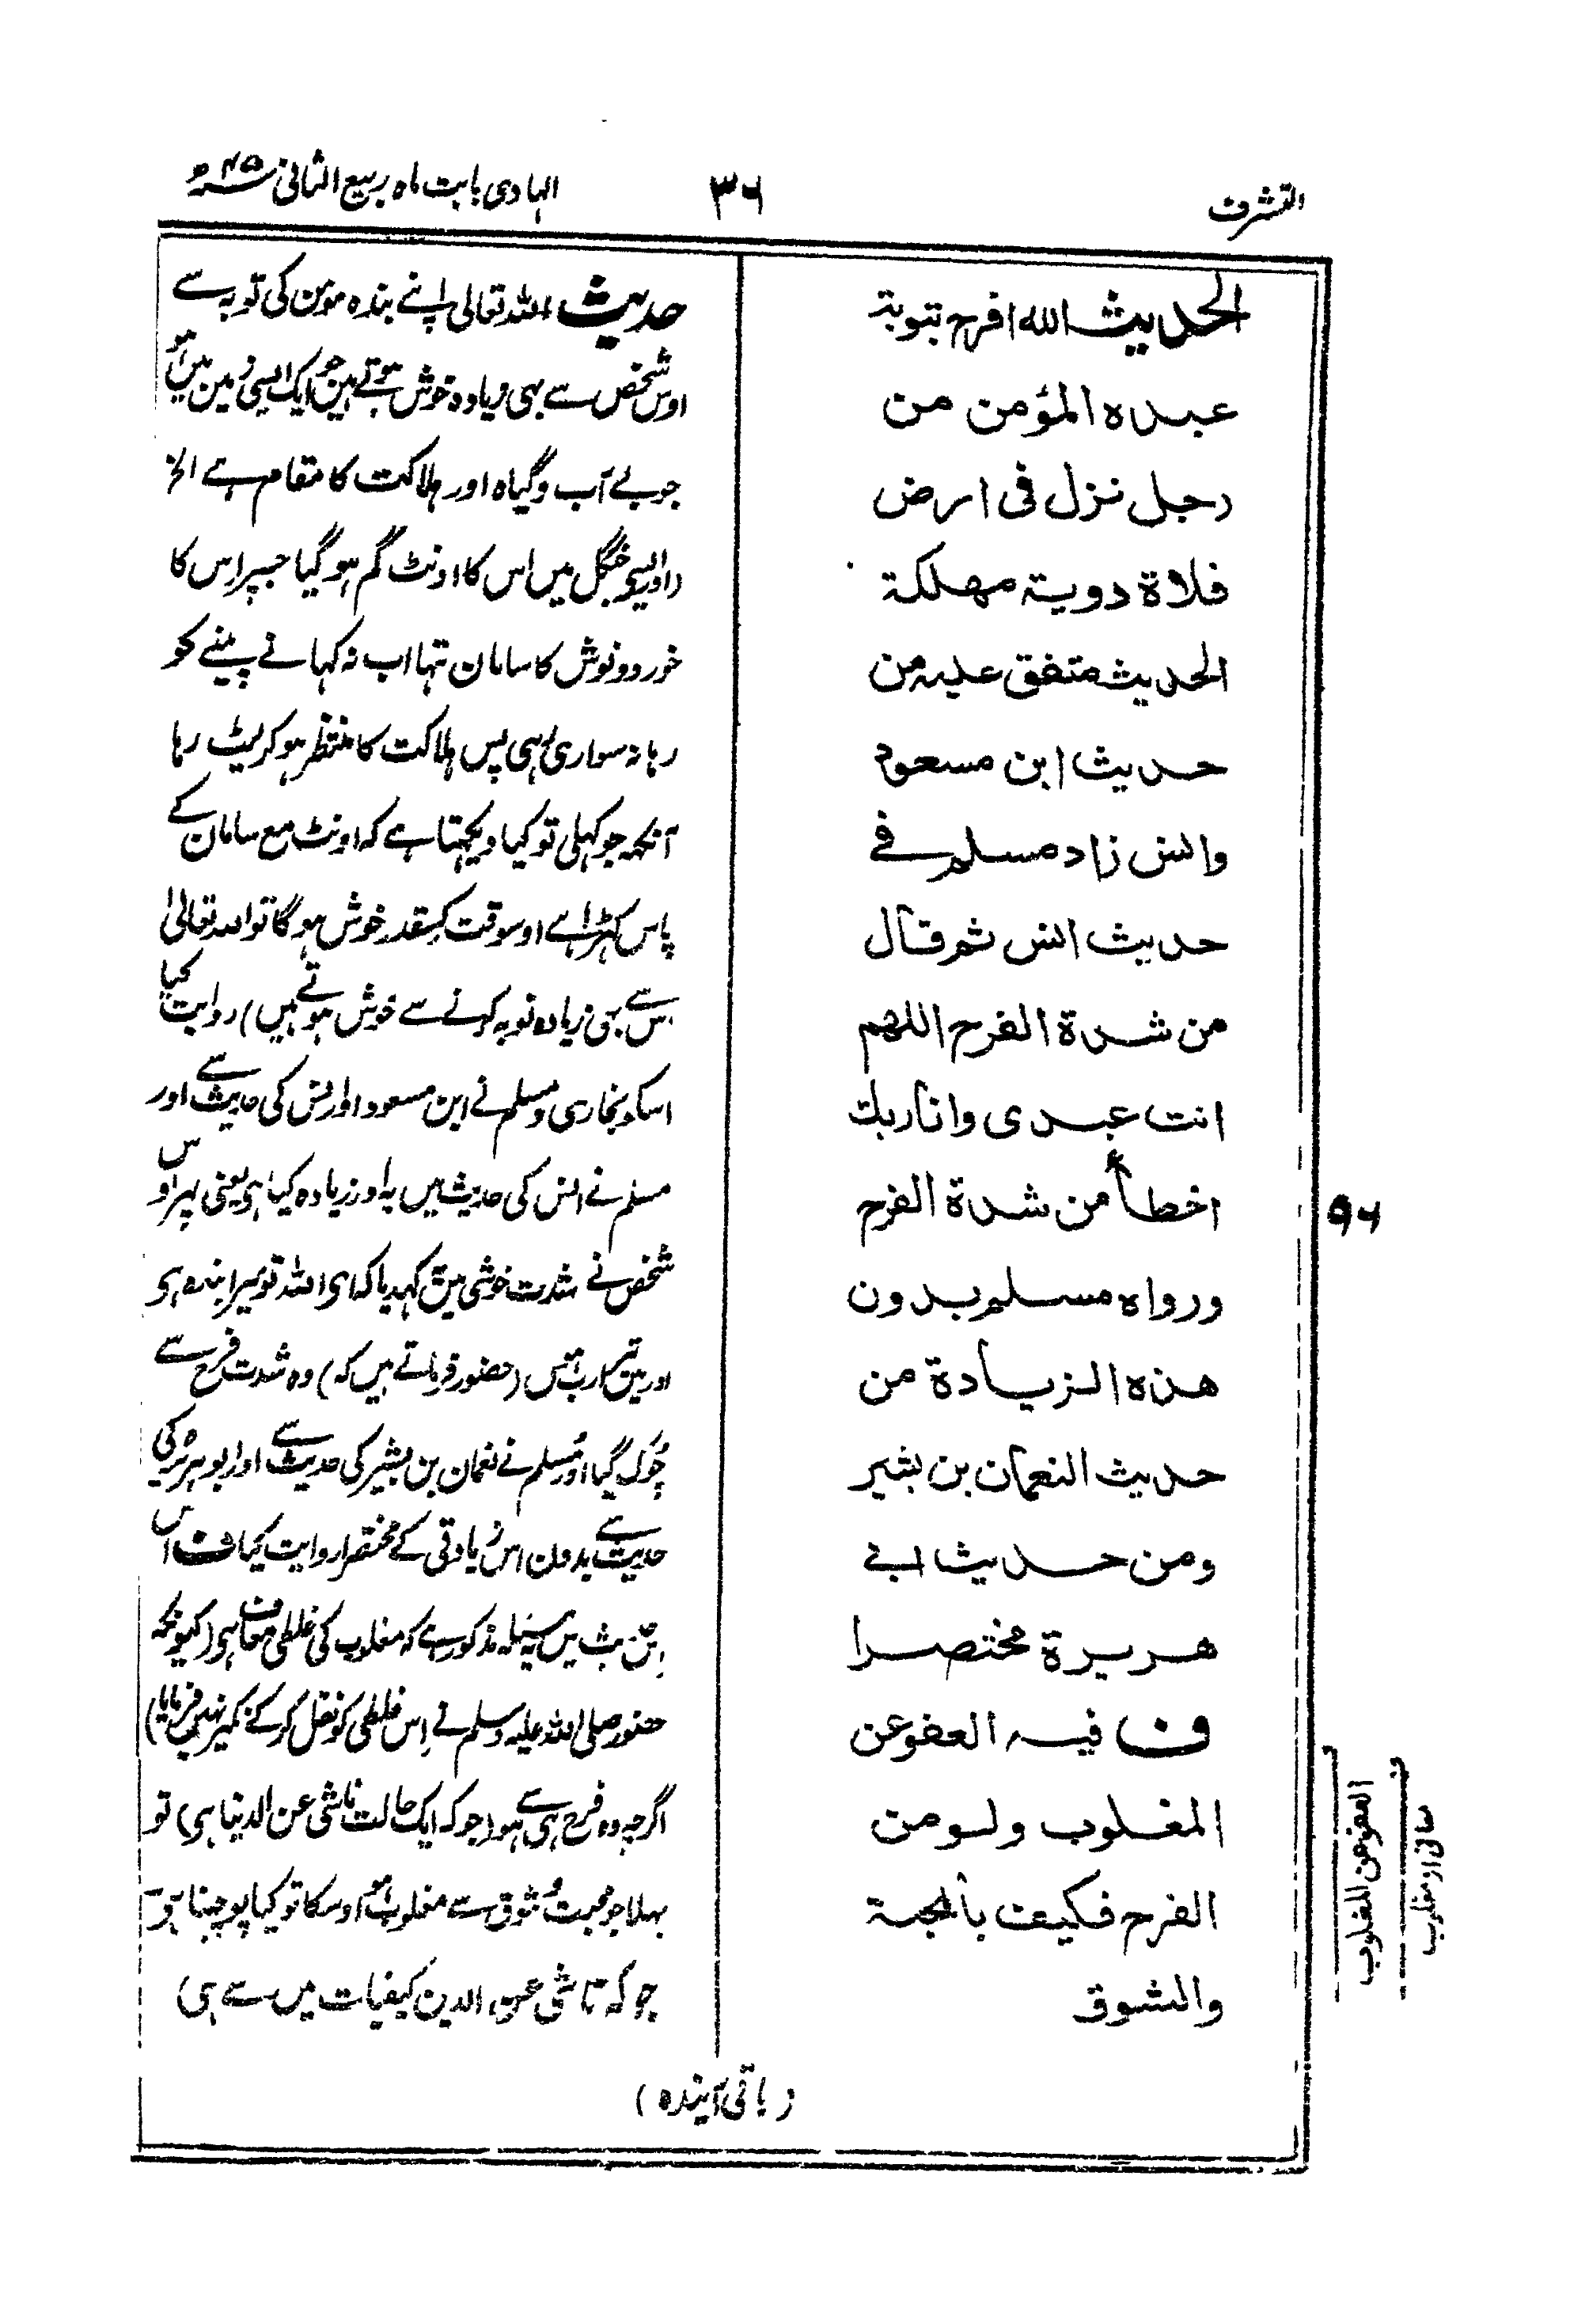 التشرف
۳۶
الہادی بابت ماہ ربیع الثانی ۴۵ھ
الحدیث الله افرح بتوبة
عبده المؤمن من
رجل نزل فی ارض
فلاة دویة مهلكة
الحدیث متفق علیه من
حدیث ابن مسعود
وانس زاد مسلم فے
حدیث انس ثم قال
من شدة الفرح اللهم
انت عبدی وانا ربك
اخطأ من شدة الفرح
ورواه مسلم بدون
هذه الزیادة من
حدیث النعمان بن بشیر
ومن حدیث ابے
هریرة مختصرا
ف فیه العفو عن
المغلوب ولو من
الفرح فكیف بالمحبة
والشوق
حدیث اللہ تعالی اپنے بندہ مؤمن کی توبہ سے
اوس شخص سے بہی زیادہ خوش ہوتے ہین جو ایک ایسی زمین میں
جو بے آب وگیاہ اور ہلاکت کا مقام ہے الخ
(اور ایسے جنگل میں اس کا اونٹ گم ہو گیا جسپر اس کا
خورد ونوش کا سامان تہا اب نہ کہانے پینے کو
رہا نہ سواری رہی پس ہلاکت کا منتظر ہو کر لیٹ رہا
آنکھ جو کہلی تو کیا دیکہتا ہے کہ اونٹ مع سامان کے
پاس کہڑا ہے اوسوقت کسقدر خوش ہو گا تو اللہ تعالیٰ
اس سے بہی زیادہ توبہ کرنے سے خوش ہوتے ہیں) روایت کیا
اسکو بخاری ومسلم نے ابن مسعود اور انس کی حدیث سے اور
مسلم نے انس کی حدیث میں یہ اور زیادہ کیا ہی یعنی پہر اوس
شخص نے شدت خوشی میں کہدیا کہ ای اللہ تو میرا بندہ ہی
اور مین تیرا رب ہوں (حضور فرماتے ہیں کہ) وہ شدت فرح سے
چوک گیا اور مسلم نے نعمان بن بشیر کی حدیث سے اور ابو ہریرہ کی
حدیث سے بدون اس زیادتی کے مختصرا روایت کیا ف اس
حدیث میں یہ مسئلہ مذکور ہے کہ مغلوب کی غلطی معاف ہی (کیونکہ
حضور صلی اللہ علیہ وسلم نے اِس غلطی کو نقل کر کے نکیر نہیں فرمایا)
اگرچہ وہ فرح ہی سے ہو (جو کہ ایک حالت ناشی عن الدنیا ہی) تو
بہلا جو محبت وشوق سے مغلوب ہو اوسکا تو کیا پوچہنا ہے
جو کہ ناشی عن الدین کیفیات میں سے ہی)
(باقی آیندہ)
۹۶
العفو عن المغلوب
معافی از مغلوب